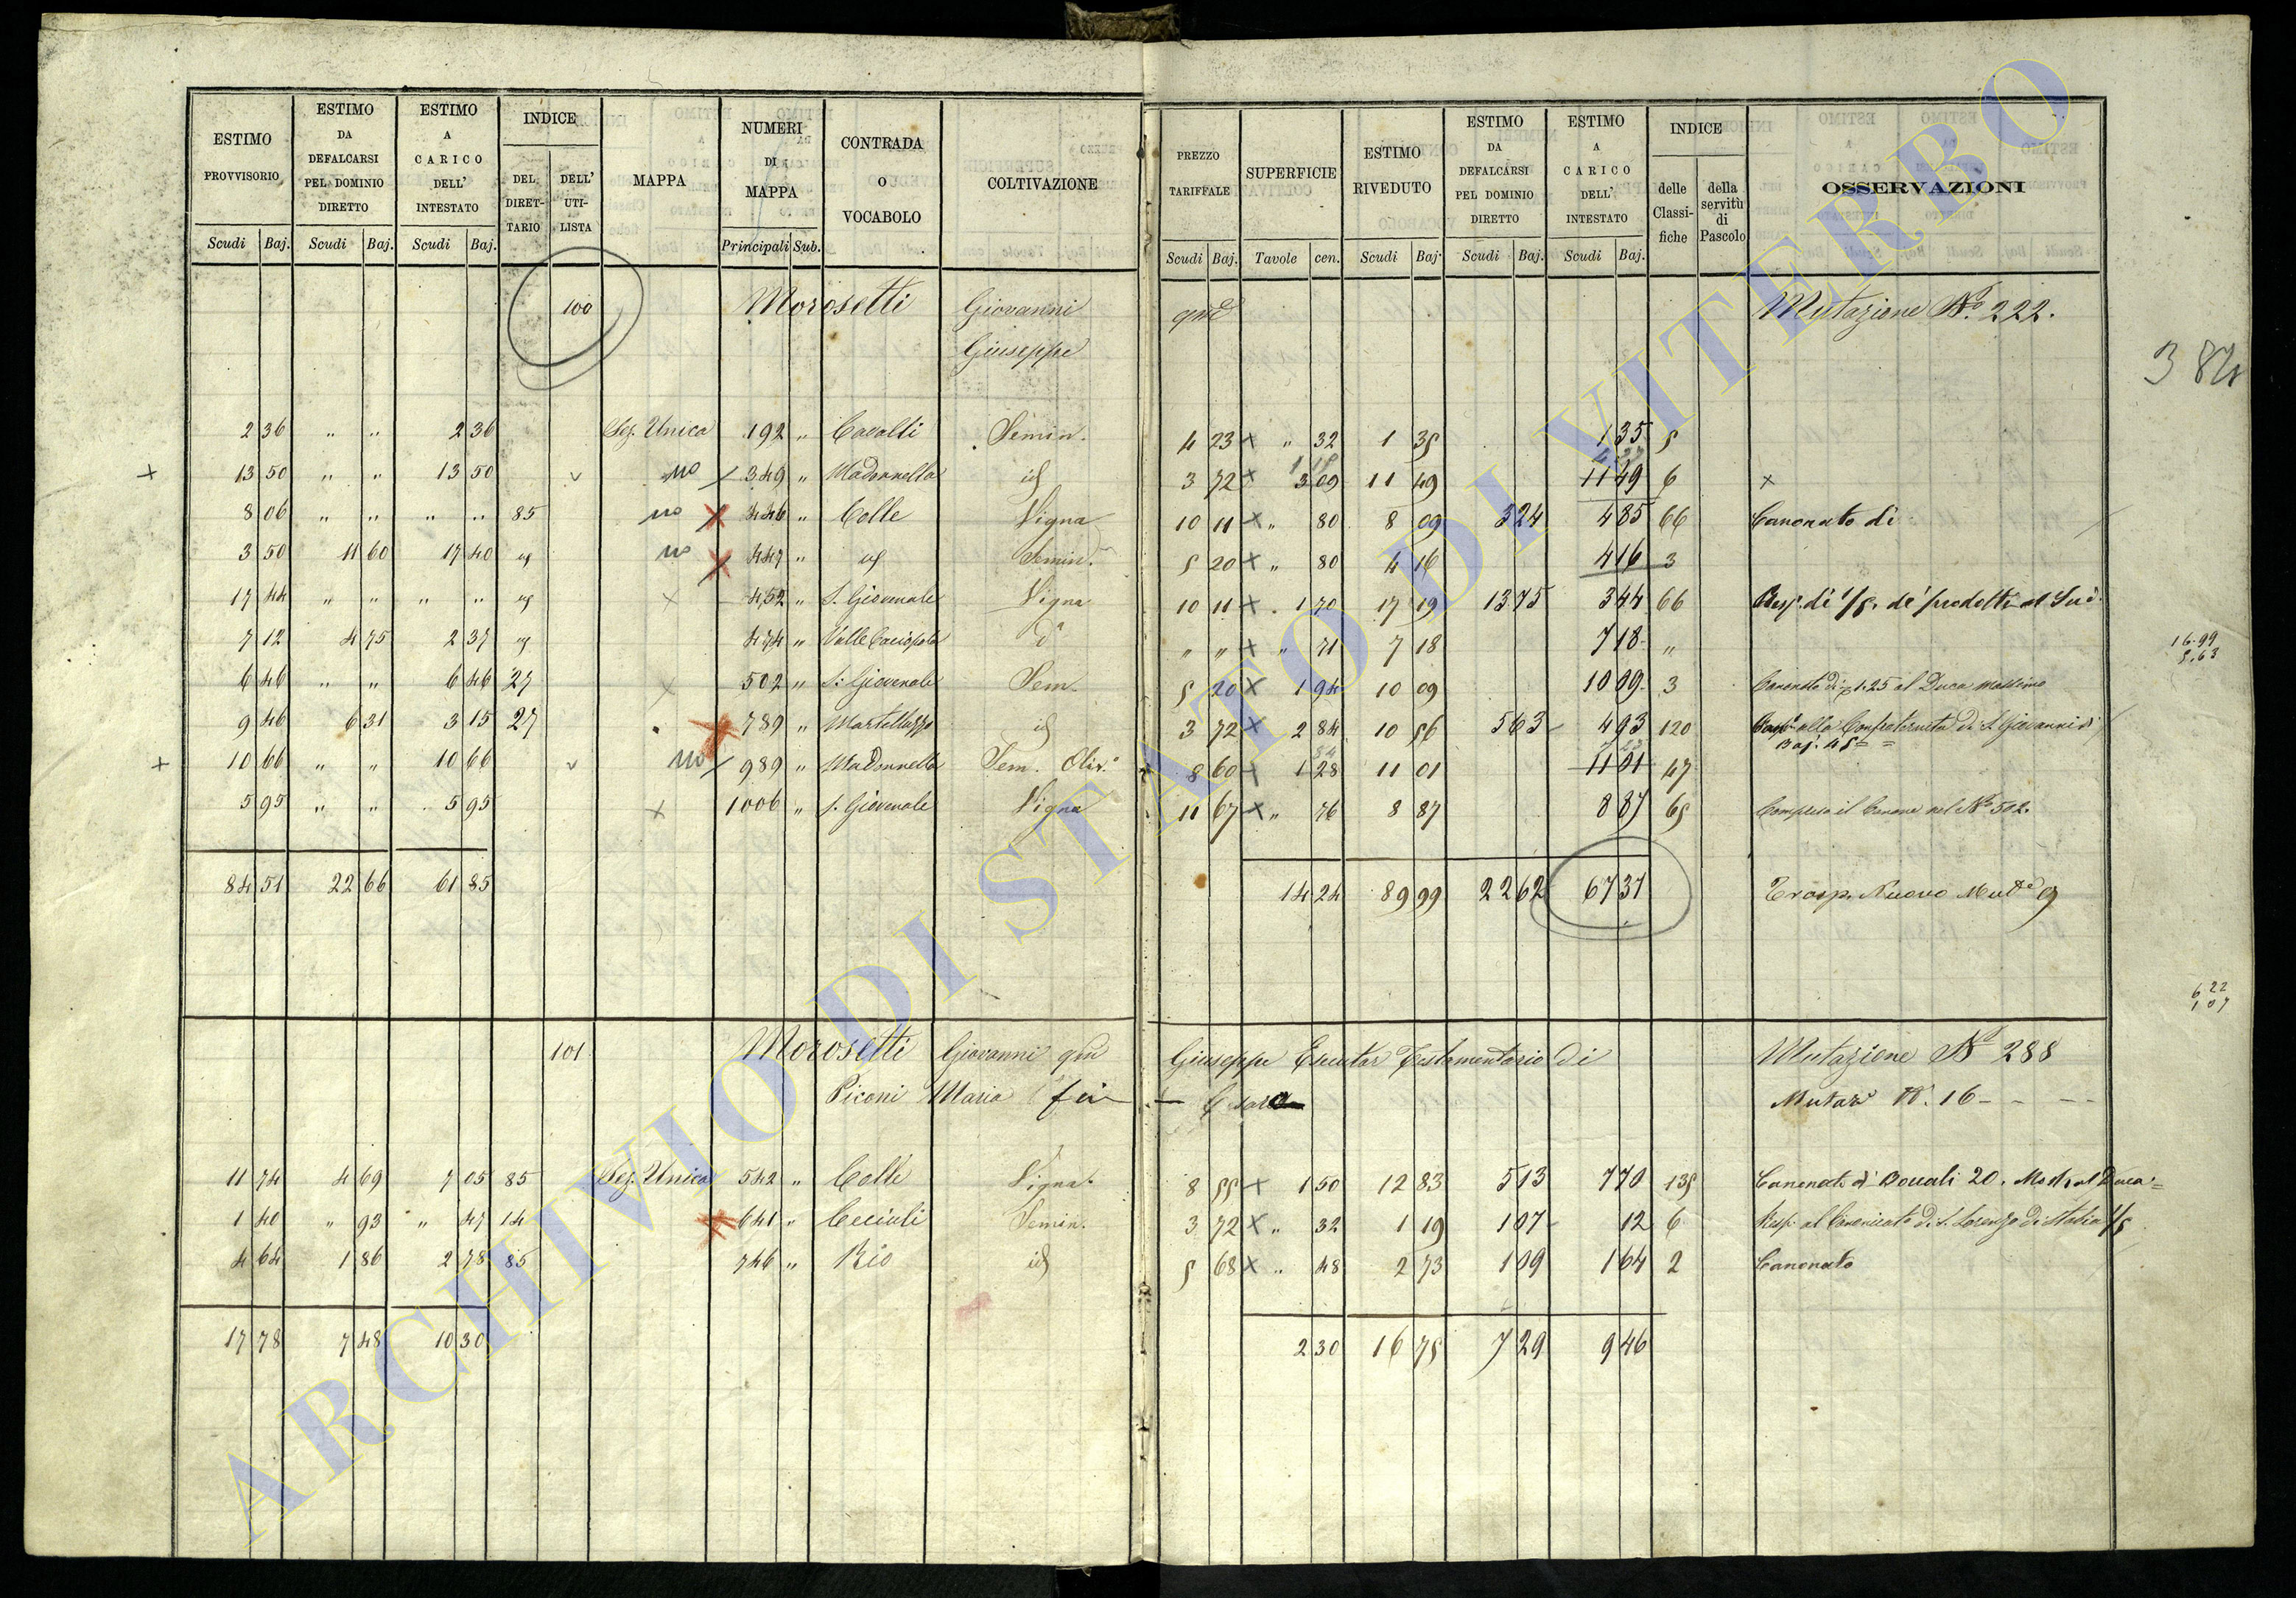 ESTIMO PROVVISORIO | ESTIMO DA DEFALCARSI PEL DOMINIO DIRETTO | ESTIMO A CARICO DELL' INTESTATO | INDICE | MAPPA | NUMERI DI MAPPA | CONTRADA O VOCABOLO | COLTIVAZIONE | PREZZO TARIFFALE | SUPERFICIE | ESTIMO RIVEDUTO | ESTIMO DA DEFALCARSI PEL DOMINIO DIRETTO | ESTIMO A CARICO DELL' INTESTATO | INDICE | OSSERVAZIONI
DEL DIRETTARIO | DELL' UTILISTA | delle Classifiche | della servitù di Pascolo
Scudi Baj. | Scudi Baj. | Scudi Baj. | Principali Sub. | Scudi Baj. | Tavole cen. | Scudi Baj. | Scudi Baj. | Scudi Baj.
100 Morosetti Giovanni qm Mutazione No. 222.
Giuseppe
2 36 " " 2 36 Sez. Unica 192 " Cavalli Semin. 4 23 x " 32 1 35 1 35 5
+ 13 50 " " 13 50 v no 349 " Madonnella id 3 72 x 3 09 11 49 11 49 6 x
8 06 " " " " 85 no x 446 " Colle Vigna 10 11 x " 80 8 09 3 24 4 85 66 Canonato di
3 50 11 60 17 40 id no x 447 " id Semin. 5 20 x " 80 4 16 4 16 3
17 44 " " " " id x 452 " S. Giovenale Vigna 10 11 x 1 70 17 19 13 75 3 44 66 Resp. di 1/5 de' prodotti al Sud.
7 12 4 75 2 37 id 474 " Valle d° " " x " 71 7 18 7 18 "
6 46 " " 6 46 27 x 502 " S. Giovenale Sem. 5 20 x 1 94 10 09 10 09 3 Canonato di 1.25 al Duca Massimo
9 46 6 31 3 15 27 x 789 " Martelluzzo id 3 72 x 2 84 10 56 5 63 4 93 120 alla Confraternita di S. Giovanni di
Baj. 45
+ 10 66 " " 10 66 v no 989 " Madonnella Sem. Oliv. 8 60 x 1 28 11 01 11 01 47
5 95 " " 5 95 x 1006 " S. Giovenale Vigna 11 67 x " 76 8 87 8 87 65 Compreso il Canone nel No 502.
84 51 22 66 61 85 14 24 89 99 22 62 67 37 Trasp. Nuovo
16.99
5.63
6 22
1 07
101 Morosetti Giovanni qm Giuseppe Esecutor Testamentario di Mutazione No 288
Piconi Maria fu Cesare N. 16
11 74 4 69 7 05 85 Sez. Unica 542 " Colle Vigna 8 55 x 1 50 12 83 5 13 7 70 135 Canonato di Bocali 20. Mosto al Duca
1 40 " 93 " 47 14 x 641 " Cecciuli Semin. 3 72 x " 32 1 19 1 07 12 6 Resp. al Canonicato di S. Lorenzo di 1/5
4 64 1 86 2 78 85 746 " Rio id 5 68 x " 48 2 73 1 09 1 64 2 Canonato
17 78 7 48 10 30 2 30 16 75 7 29 9 46
ARCHIVIO DI STATO DI VITERBO